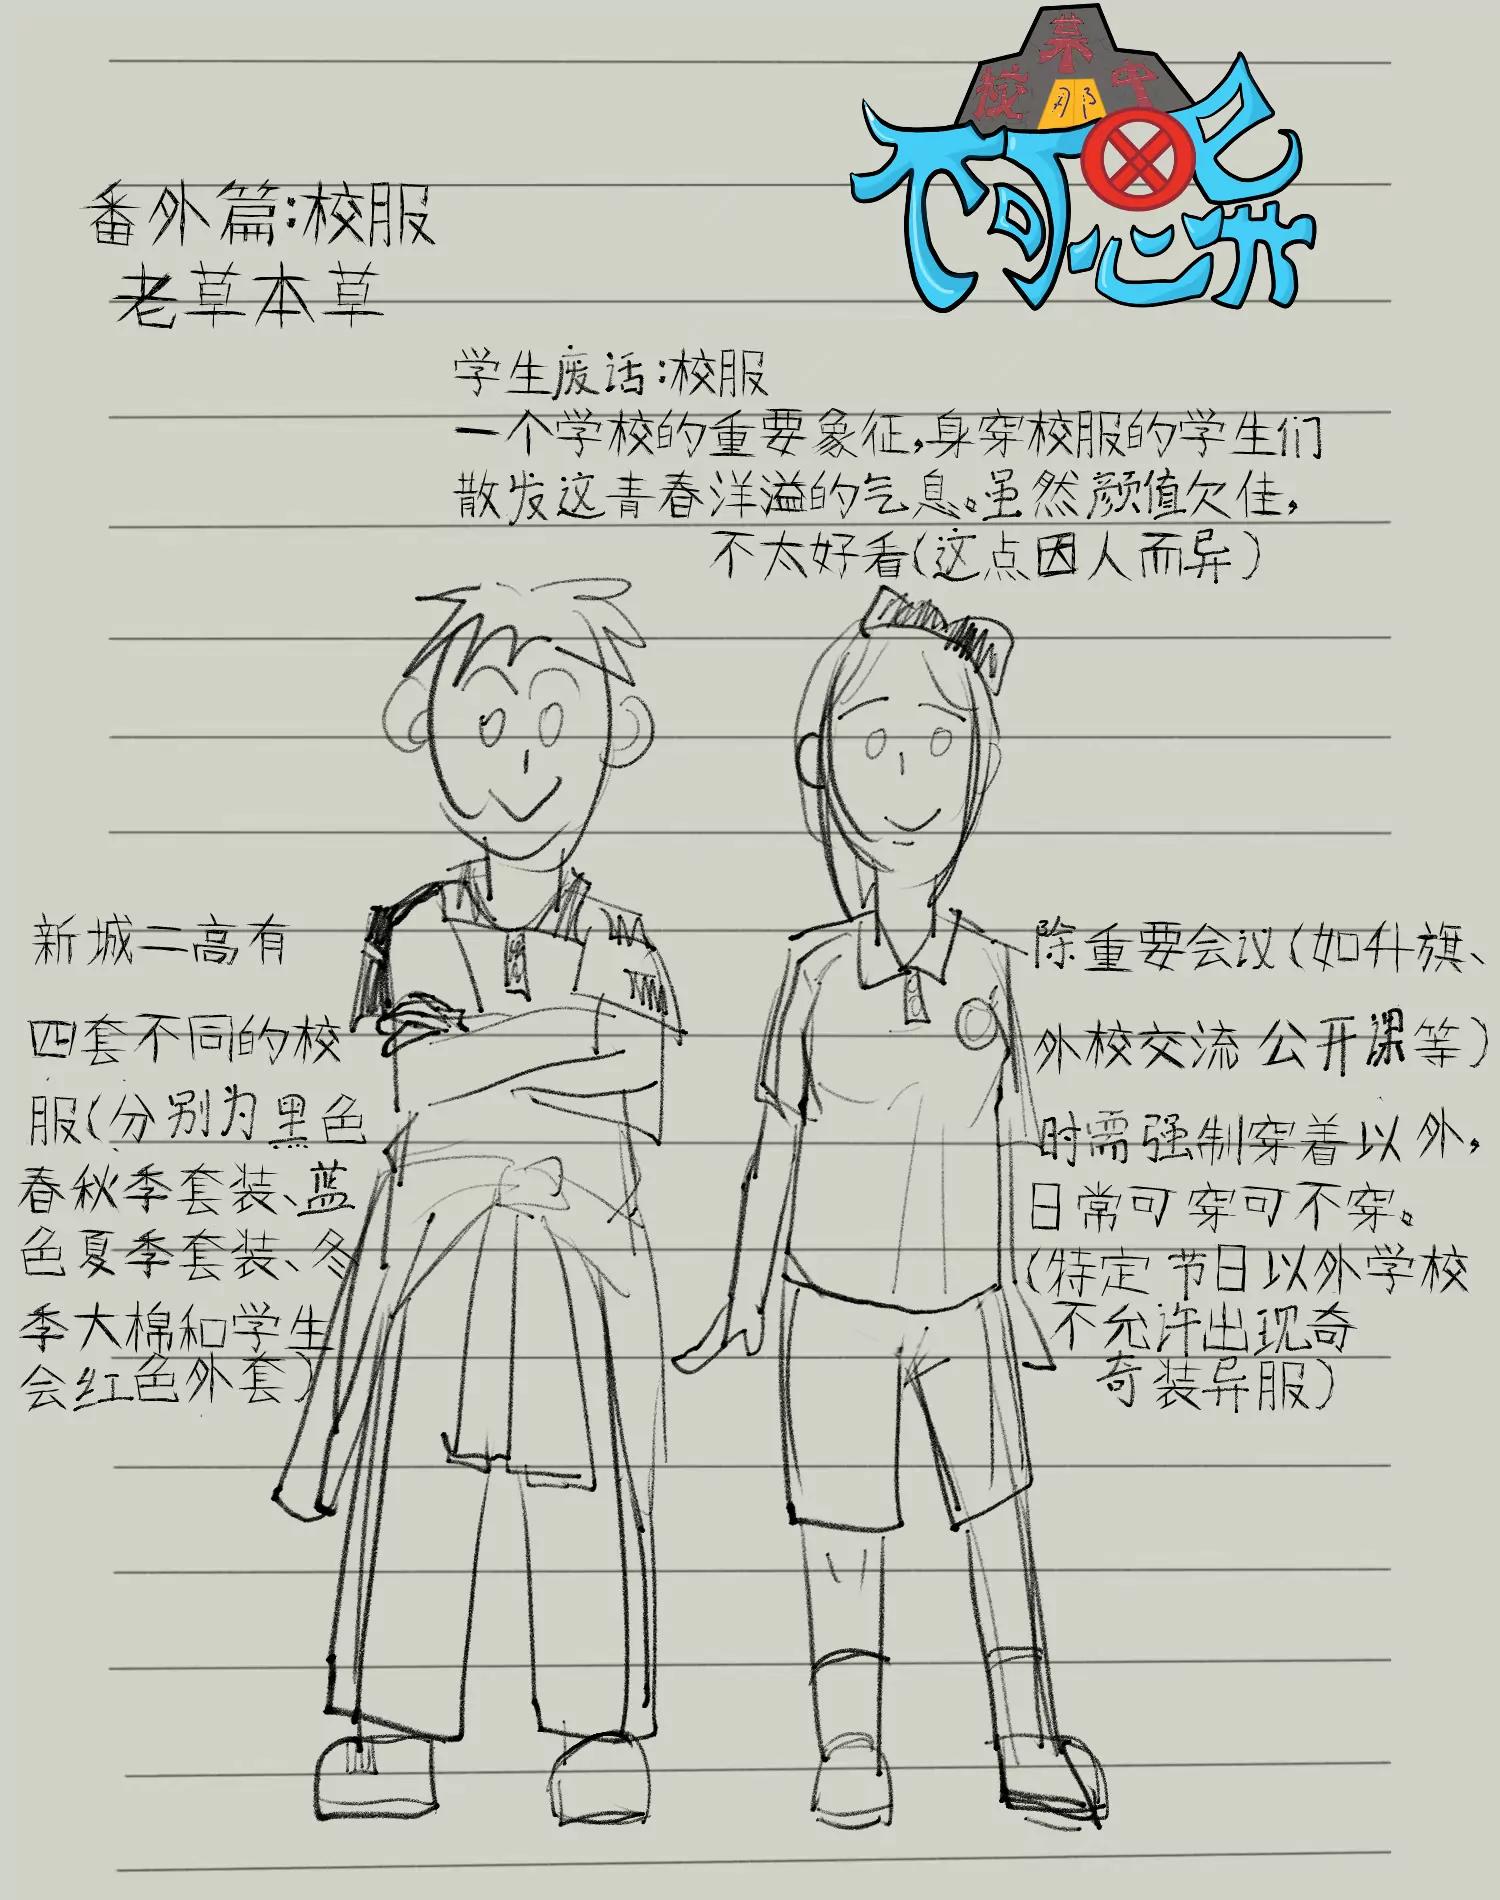 某
校 中
那
不可思异
番外篇:校服
老草本草
学生废话:校服
一个学校的重要象征,身穿校服的学生们
散发这青春洋溢的气息。虽然颜值欠佳,
不太好看(这点因人而异)
新城二高有
四套不同的校
服(分别为黑色
春秋季套装、蓝
色夏季套装、冬
季大棉和学生
会红色外套)
除重要会议(如升旗、
外校交流 公开课等)
时需强制穿着以外,
日常可穿可不穿。
(特定节日以外学校
不允许出现奇
奇装异服)